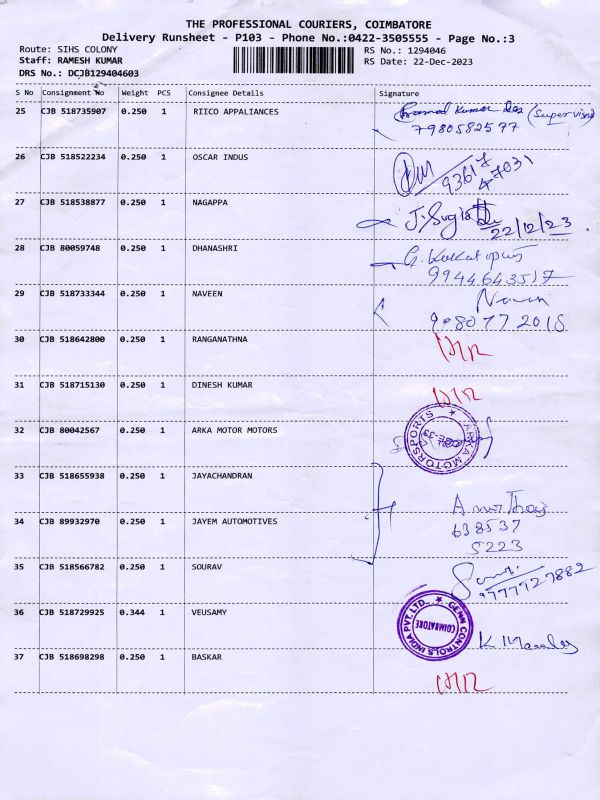 THE PROFESSIONAL COURIERS, COIMBATORE
Delivery Runsheet - P103 - Phone No.:0422-3505555 - Page No.:3
Route: SIHS COLONY RS No.: 1294046
Staff: RAMESH KUMAR RS Date: 22-Dec-2023
DRS No.: DCJB129404603
S No Consignment No Weight PCS Consignee Details Signature
25 CJB 518735907 0.250 1 RIICO APPALIANCES Kumar Das (Supervisor)
7980582597
26 CJB 518522234 0.250 1 OSCAR INDUS
27 CJB 518538877 0.250 1 NAGAPPA
22/12/23
28 CJB 80059748 0.250 1 DHANASHRI
9944643517
29 CJB 518733344 0.250 1 NAVEEN Naveen
9080772018
30 CJB 518642800 0.250 1 RANGANATHNA
31 CJB 518715130 0.250 1 DINESH KUMAR
32 CJB 80042567 0.250 1 ARKA MOTOR MOTORS ARKA MOTORSPORTS
33 CJB 518655938 0.250 1 JAYACHANDRAN
34 CJB 89932970 0.250 1 JAYEM AUTOMOTIVES
638537
5223
35 CJB 518566782 0.250 1 SOURAV
9777727882
36 CJB 518729925 0.344 1 VEUSAMY GENN CONTROLS INDIA PVT. LTD., COIMBATORE
37 CJB 518698298 0.250 1 BASKAR